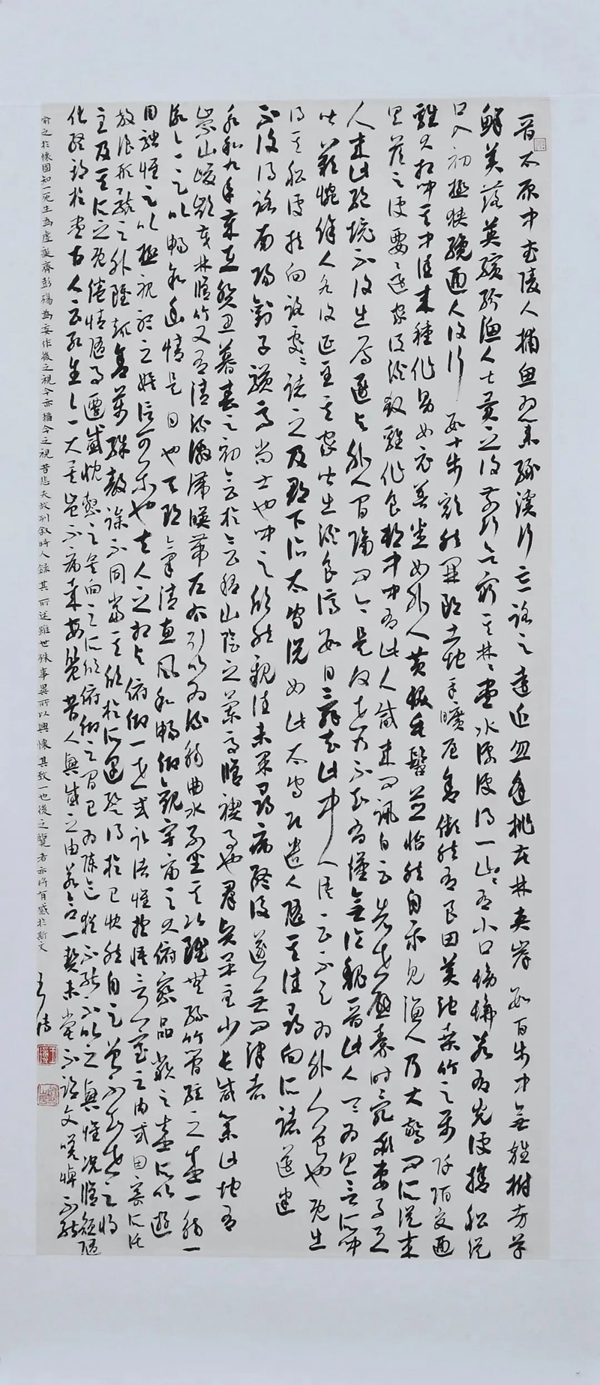 晉太原中武陵人捕魚為業緣溪行忘路之遠近忽逢桃花林夾岸數百步中無雜樹芳草
鮮美落英繽紛漁人甚異之復前行欲窮其林林盡水源便得一山山有小口彷彿若有光便捨船從
口入初極狹纔通人復行數十步豁然開朗土地平曠屋舍儼然有良田美池桑竹之屬阡陌交通
雞犬相聞其中往來種作男女衣著悉如外人黃髮垂髫並怡然自樂見漁人乃大驚問所從來
具答之便要還家設酒殺雞作食村中聞有此人咸來問訊自云先世避秦時亂率妻子邑
人來此絕境不復出焉遂與外人間隔問今是何世乃不知有漢無論魏晉此人一一為具言所聞
皆歎惋餘人各復延至其家皆出酒食停數日辭去此中人語云不足為外人道也既出
得其船便扶向路處處誌之及郡下詣太守說如此太守即遣人隨其往尋向所誌遂迷
不復得路南陽劉子驥高尚士也聞之欣然親往未果尋病終後遂無問津者
永和九年歲在癸丑暮春之初會於會稽山陰之蘭亭修禊事也群賢畢至少長咸集此地有
崇山峻領茂林脩竹又有清流激湍暎帶左右引以為流觴曲水列坐其次雖無絲竹管絃之盛一觴一
詠亦足以暢敘幽情是日也天朗氣清惠風和暢仰觀宇宙之大俯察品類之盛所以遊
目騁懷足以極視聽之娛信可樂也夫人之相與俯仰一世或取諸懷抱悟言一室之內或因寄所託
放浪形骸之外雖趣舍萬殊靜躁不同當其欣於所遇暫得於己快然自足曾不知老之將
至及其所之既倦情隨事遷感慨繫之矣向之所欣俯仰之間已為陳跡猶不能不以之興懷況脩短隨
化終期於盡古人云死生亦大矣豈不痛哉每覽昔人興感之由若合一契未嘗不臨文嗟悼不能
喻之於懷固知一死生為虛誕齊彭殤為妄作後之視今亦猶今之視昔悲夫故列敘時人錄其所述雖世殊事異所以興懷其致一也後之覽者亦將有感於斯文